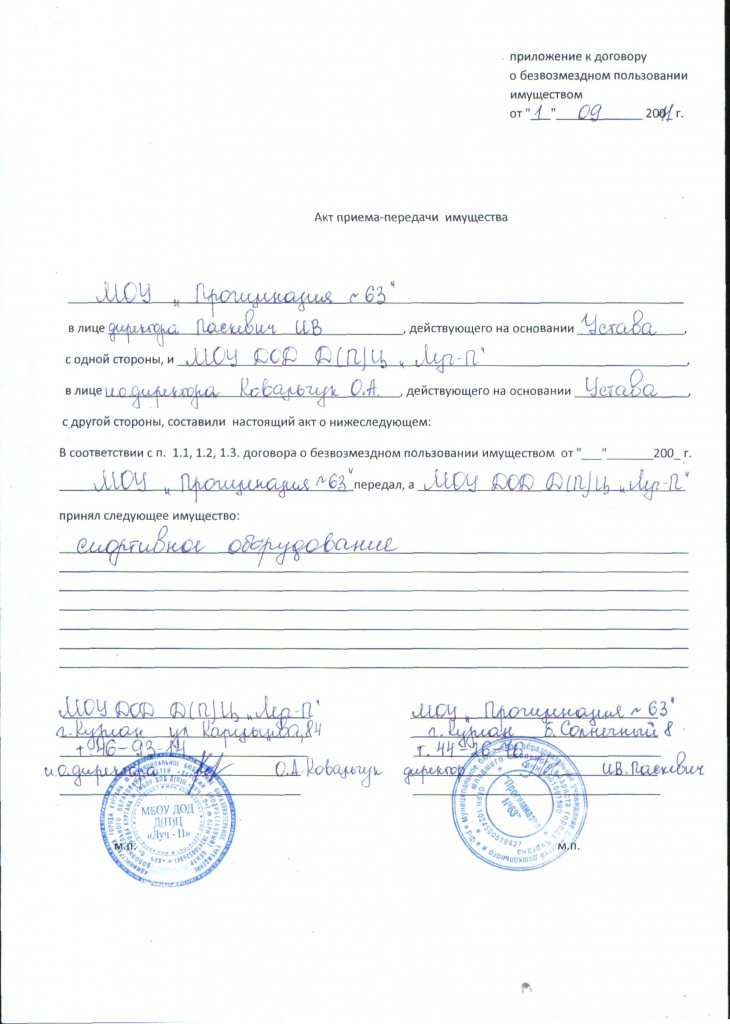 приложение к договору
о безвозмездном пользовании
имуществом
от "1" 09 2011 г.
Акт приема-передачи имущества
МОУ „Прогимназия № 63"
в лице директора Паскевич И.В , действующего на основании Устава ,
с одной стороны, и МОУ ДОД Д(П)Ц „Луч-П" ,
в лице и.о директора Ковальчук О.А. , действующего на основании Устава ,
с другой стороны, составили настоящий акт о нижеследующем:
В соответствии с п. 1.1, 1.2, 1.3. договора о безвозмездном пользовании имуществом от "___"_______200_ г.
МОУ „Прогимназия № 63" передал, а МОУ ДОД Д(П)Ц „Луч-П"
принял следующее имущество:
спортивное оборудование
МОУ ДОД Д(П)Ц „Луч-П"
г. Курган ул Карельцева, 84
т. 46-93-14
и.о. директора О.А.Ковальчук
МБОУ ДОД
Д(П)Ц
«Луч - П»
м.п.
МОУ „Прогимназия № 63"
г. Курган Б. Солнечный 8
т. 44-26-
директор И.В. Паскевич
"Прогимназия
№63"
м.п.